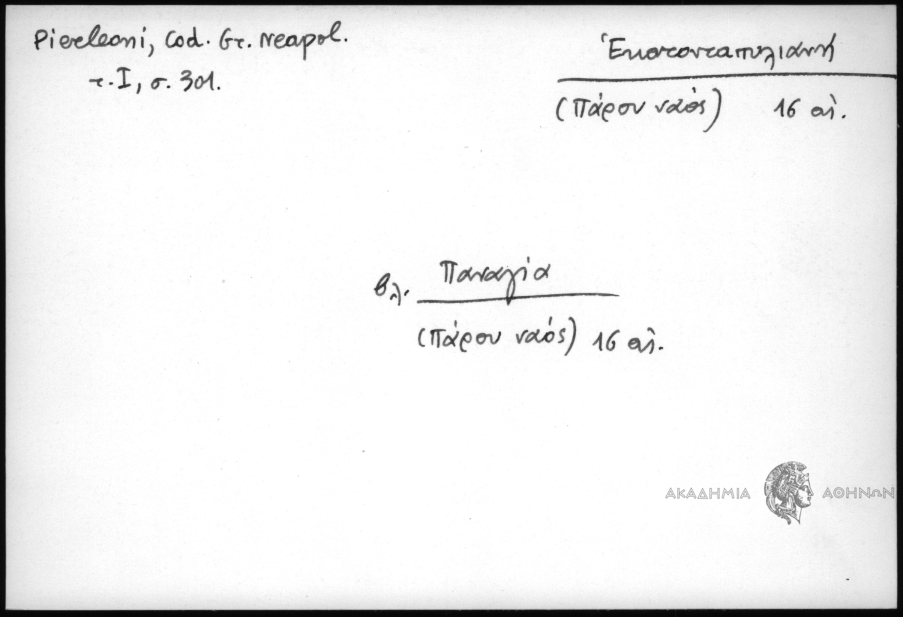 Pierleoni, Cod. Gr. Neapol.
τ. I, σ. 301.
Ἑκατονταπυλιανή
(Πάρου ναός) 16 αἰ.
βλ. Παναγία
(Πάρου ναός) 16 αἰ.
ΑΚΑΔΗΜΙΑ ΑΘΗΝΩΝ